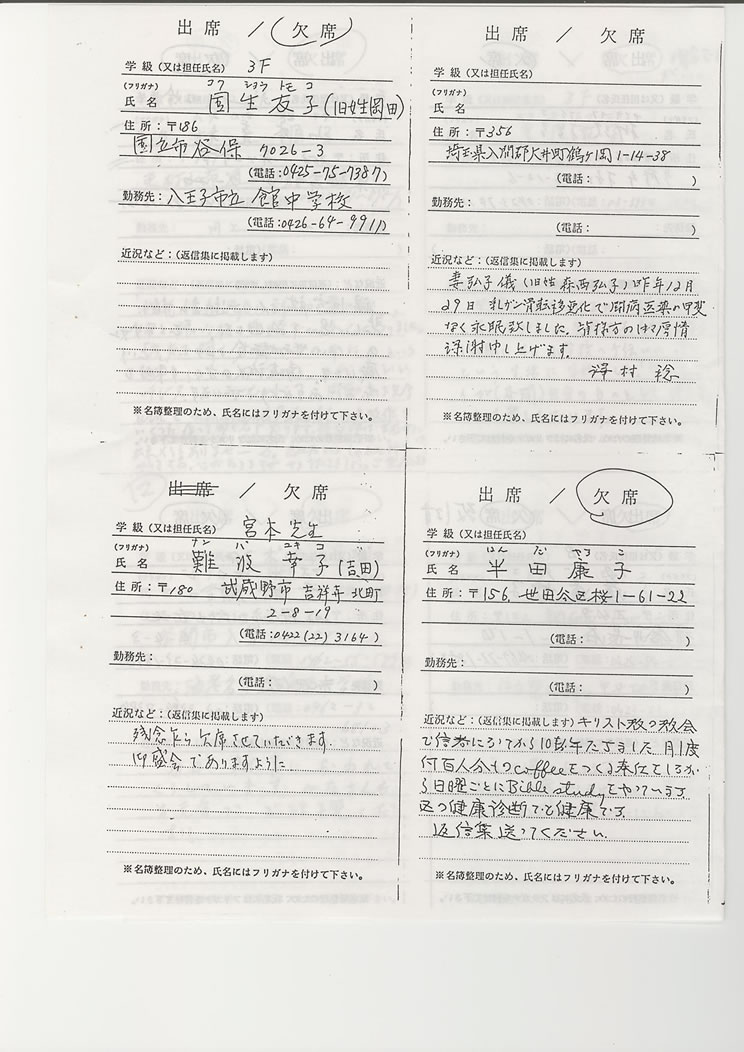 出席 / 欠席
学級（又は担任氏名） 3F
(フリガナ) コクショウ トモコ
氏名 国生友子(旧姓岡田)
住所：〒186
国立市谷保 7026-3
(電話：0425-75-7387)
勤務先：八王子市立 館中学校
(電話：0426-64-9911)
近況など：（返信集に掲載します）
※名簿整理のため、氏名にはフリガナを付けて下さい。
出席 / 欠席
学級（又は担任氏名）
(フリガナ)
氏名
住所：〒356
埼玉県入間郡大井町鶴ヶ岡1-14-38
(電話： )
勤務先：
(電話： )
近況など：（返信集に掲載します）
妻弘子儀(旧姓森西弘子)昨年12月
29日乳ガン骨転移悪化で闘病医薬の甲斐
なく永眠致しました。皆様方の御厚情
深謝申し上げます。
澤村 稔
※名簿整理のため、氏名にはフリガナを付けて下さい。
出席 / 欠席
学級（又は担任氏名） 宮本先生
(フリガナ) ナンバ ユキコ
氏名 難波幸子(吉田)
住所：〒180 武蔵野市 吉祥寺 北町
2-8-19
(電話：0422(22)3164)
勤務先：
(電話： )
近況など：（返信集に掲載します）
残念乍ら欠席させていただきます.
御盛会でありますように
※名簿整理のため、氏名にはフリガナを付けて下さい。
出席 / 欠席
学級（又は担任氏名）
(フリガナ) はんだ やすこ
氏名 半田康子
住所：〒156. 世田谷区桜1-61-22
(電話： )
勤務先：
(電話： )
近況など：（返信集に掲載します）キリスト教の教会
で信者になってから10数年たちました.月1度
何百人分ものcoffeeをつくる奉仕をしなが
ら日曜ごとにBible studyをやっています
区の健康診断でも健康です
返信集送ってください.
※名簿整理のため、氏名にはフリガナを付けて下さい。